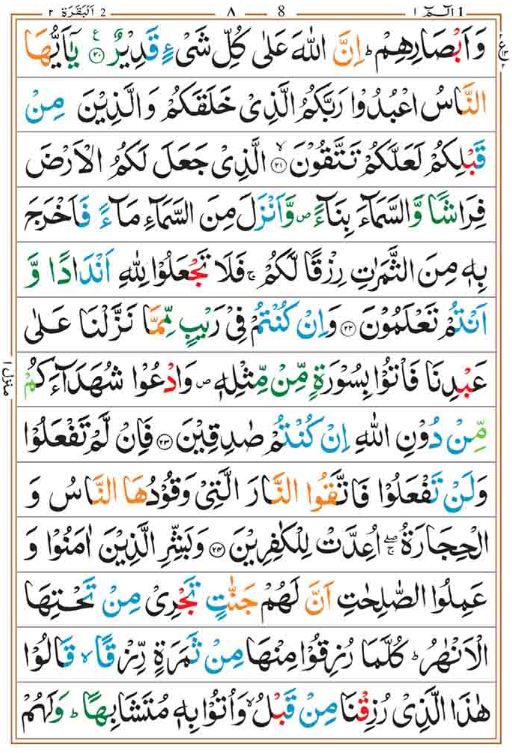 الٓمّٓ ١ 1 8 ٨ اَلْبَقَرَة ٢ 2
وَاَبْصَارِهِمْ ؕ اِنَّ اللّٰهَ عَلٰى كُلِّ شَىْءٍ قَدِيْرٌ ۟﴿۲۰﴾ يٰٓاَيُّهَا
النَّاسُ اعْبُدُوْا رَبَّكُمُ الَّذِىْ خَلَقَكُمْ وَالَّذِيْنَ مِنْ
قَبْلِكُمْ لَعَلَّكُمْ تَتَّقُوْنَ ۙ﴿۲۱﴾ الَّذِىْ جَعَلَ لَكُمُ الْاَرْضَ
فِرَاشًا وَّالسَّمَآءَ بِنَآءً ۪ وَّاَنْزَلَ مِنَ السَّمَآءِ مَآءً فَاَخْرَجَ
بِهٖ مِنَ الثَّمَرٰتِ رِزْقًا لَّكُمْ ۚ فَلَا تَجْعَلُوْا لِلّٰهِ اَنْدَادًا وَّ
اَنْتُمْ تَعْلَمُوْنَ ﴿۲۲﴾ وَاِنْ كُنْتُمْ فِىْ رَيْبٍ مِّمَّا نَزَّلْنَا عَلٰى
عَبْدِنَا فَاْتُوْا بِسُوْرَةٍ مِّنْ مِّثْلِهٖ ۪ وَادْعُوْا شُهَدَآءَكُمْ
مِّنْ دُوْنِ اللّٰهِ اِنْ كُنْتُمْ صٰدِقِيْنَ ﴿۲۳﴾ فَاِنْ لَّمْ تَفْعَلُوْا
وَلَنْ تَفْعَلُوْا فَاتَّقُوا النَّارَ الَّتِىْ وَقُوْدُهَا النَّاسُ وَ
الْحِجَارَةُ ۖۚ اُعِدَّتْ لِلْكٰفِرِيْنَ ﴿۲۴﴾ وَبَشِّرِ الَّذِيْنَ اٰمَنُوْا وَ
عَمِلُوا الصّٰلِحٰتِ اَنَّ لَهُمْ جَنّٰتٍ تَجْرِىْ مِنْ تَحْتِهَا
الْاَنْهٰرُ ؕ كُلَّمَا رُزِقُوْا مِنْهَا مِنْ ثَمَرَةٍ رِّزْقًا ۙ قَالُوْا
هٰذَا الَّذِىْ رُزِقْنَا مِنْ قَبْلُ ۙ وَاُتُوْا بِهٖ مُتَشَابِهًا ؕ وَلَهُمْ
منزل ١